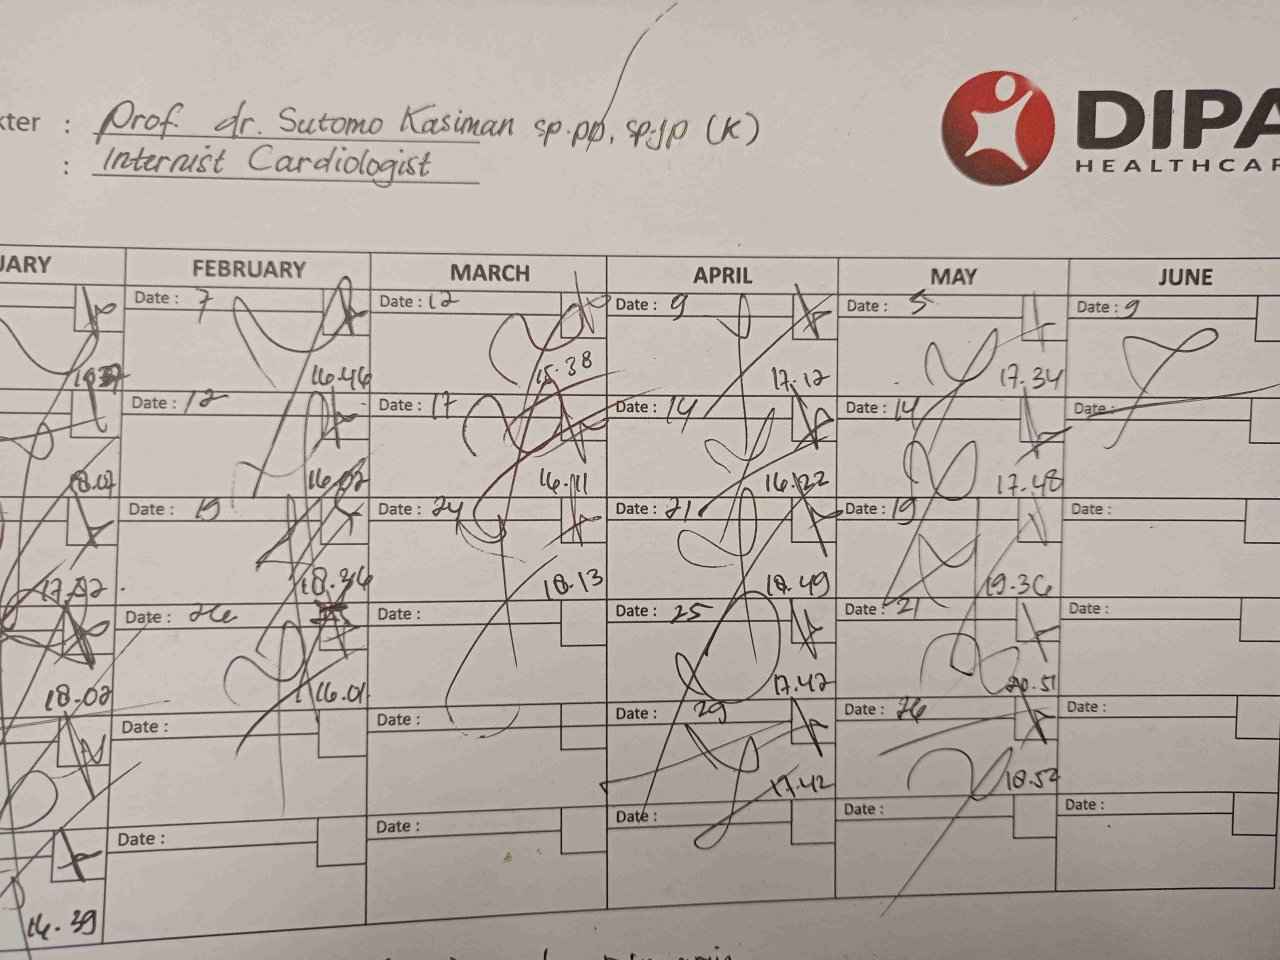 kter : Prof. dr. Sutomo Kasiman sp.pp, sp.jp (K)
: Internist Cardiologist
DIPA
HEALTHCAR
UARY FEBRUARY MARCH APRIL MAY JUNE
Date : 7 Date : 12 Date : 9 Date : 5 Date : 9
16.46 15.38 17.12 17.34
Date : 12 Date : 17 Date : 14 Date : 14 Date :
18.07 16.02 16.11 16.22 17.48
Date : 19 Date : 24 Date : 21 Date : 19 Date :
17.02 18.36 18.13 18.49 19.36
Date : 26 Date : Date : 25 Date : 21 Date :
18.02 16.01 17.42 20.51
Date : Date : Date : 29 Date : 26 Date :
17.42 18.52
Date : Date : Date : Date : Date :
16.39